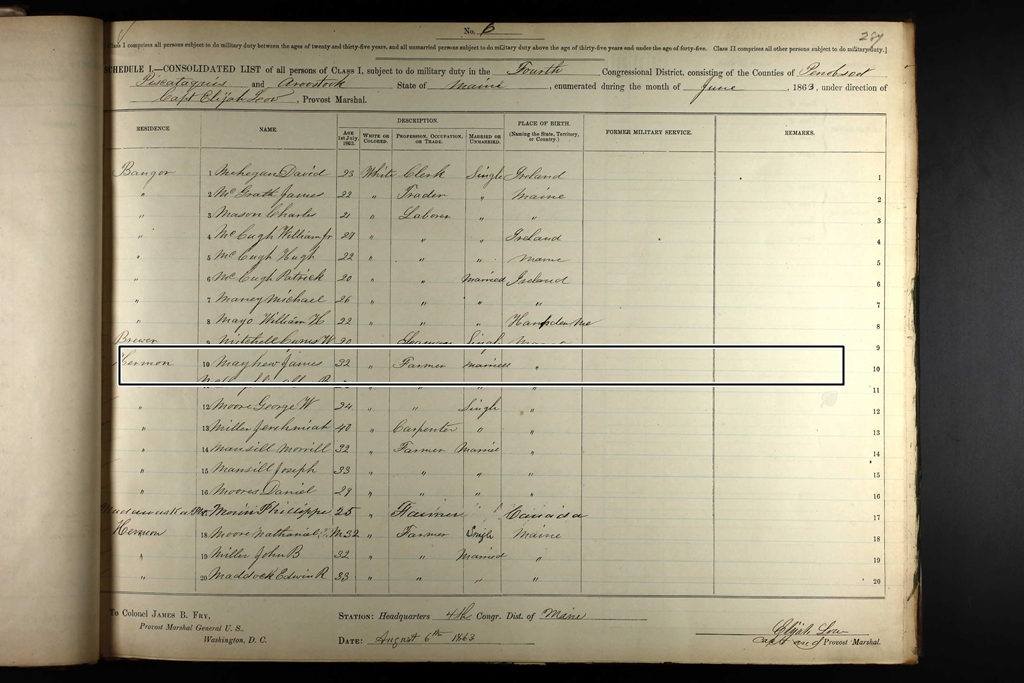 No. 6
287
[Class I comprises all persons subject to do military duty between the ages of twenty and thirty-five years, and all unmarried persons subject to do military duty above the age of thirty-five years and under the age of forty-five. Class II comprises all other persons subject to military duty.]
SCHEDULE I.—CONSOLIDATED LIST of all persons of CLASS I, subject to do military duty in the Fourth Congressional District, consisting of the Counties of Penobscot
Piscataquis and Aroostook State of Maine, enumerated during the month of June, 1863, under direction of
Capt Elijah Low, Provost Marshal.
RESIDENCE. NAME. DESCRIPTION. PLACE OF BIRTH. FORMER MILITARY SERVICE. REMARKS.
AGE 1st July, 1863. WHITE OR COLORED. PROFESSION, OCCUPATION, OR TRADE. MARRIED OR UNMARRIED. (Naming the State, Territory, or Country.)
Bangor 1 Mehegan David 23 White Clerk Single Ireland 1
" 2 McGrath James 22 " Trader " Maine 2
" 3 Mason Charles 21 " Laborer " " 3
" 4 McCugh William Jr 27 " " " Ireland 4
" 5 McCugh Hugh 22 " " " Maine 5
" 6 McCugh Patrick 20 " " Married Ireland 6
" 7 Maney Michael 26 " " " " 7
" 8 Mayo William H 22 " " " Hampden Me 8
Brewer 9 Mitchell W 9
Hermon 10 Mayhew James 32 " Farmer Married " 10
11
" 12 Moore George W 24 " " Single " 12
" 13 Miller Jerehmiah 40 " Carpenter " " 13
" 14 Mansill Morrill 32 " Farmer Married " 14
" 15 Mansill Joseph 33 " " " " 15
" 16 Moores Daniel 29 " " " " 16
Morin Phillippe 25 " Farmer " Canada 17
Hermon 18 Moore Nathanial M 32 " Farmer Single Maine 18
" 19 Miller John B 32 " " Married " 19
" 20 Maddock Edwin R 33 " " " " 20
To Colonel JAMES B. FRY,
Provost Marshal General U. S.,
Washington, D. C.
STATION: Headquarters 4th Congr. Dist. of Maine
DATE: August 6th 1863
Elijah Low
Capt and Provost Marshal.